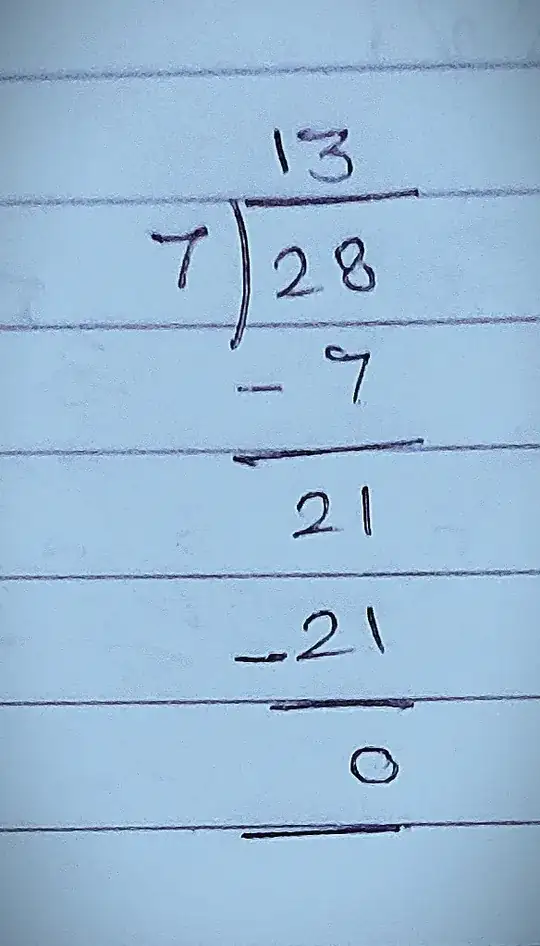 13
7)28
- 7
21
-21
0